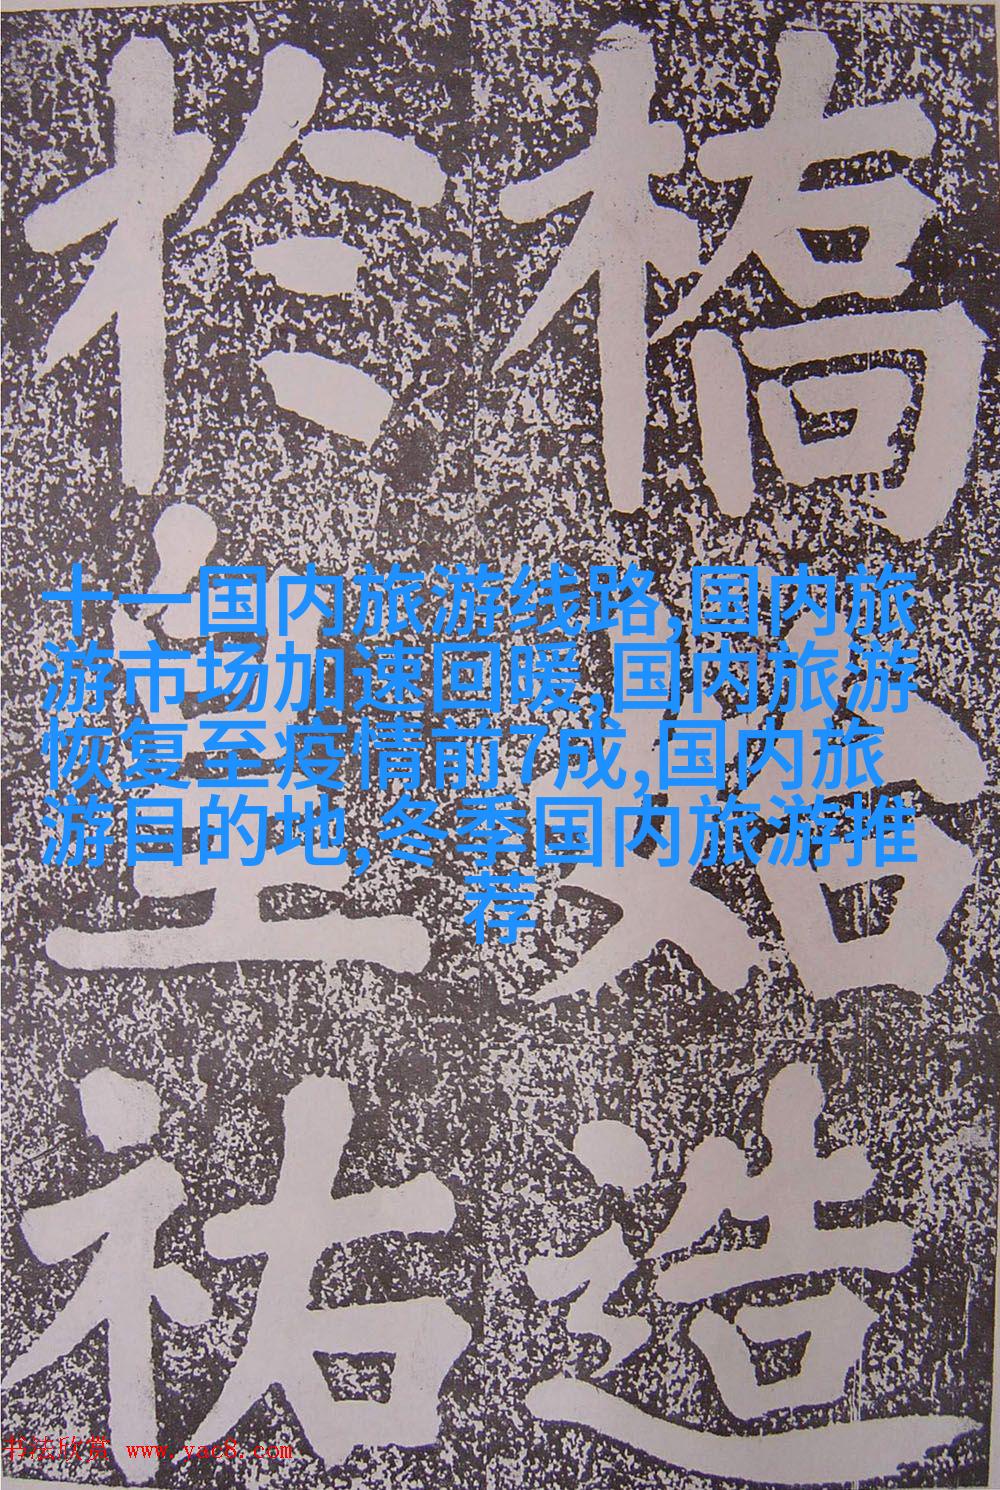 橋始造
於皇祐
十一国内旅游线路,国内旅
游市场加速回暖,国内旅游
恢复至疫情前7成,国内旅
游目的地,冬季国内旅游推
荐
书法欣赏 www.yac8.com